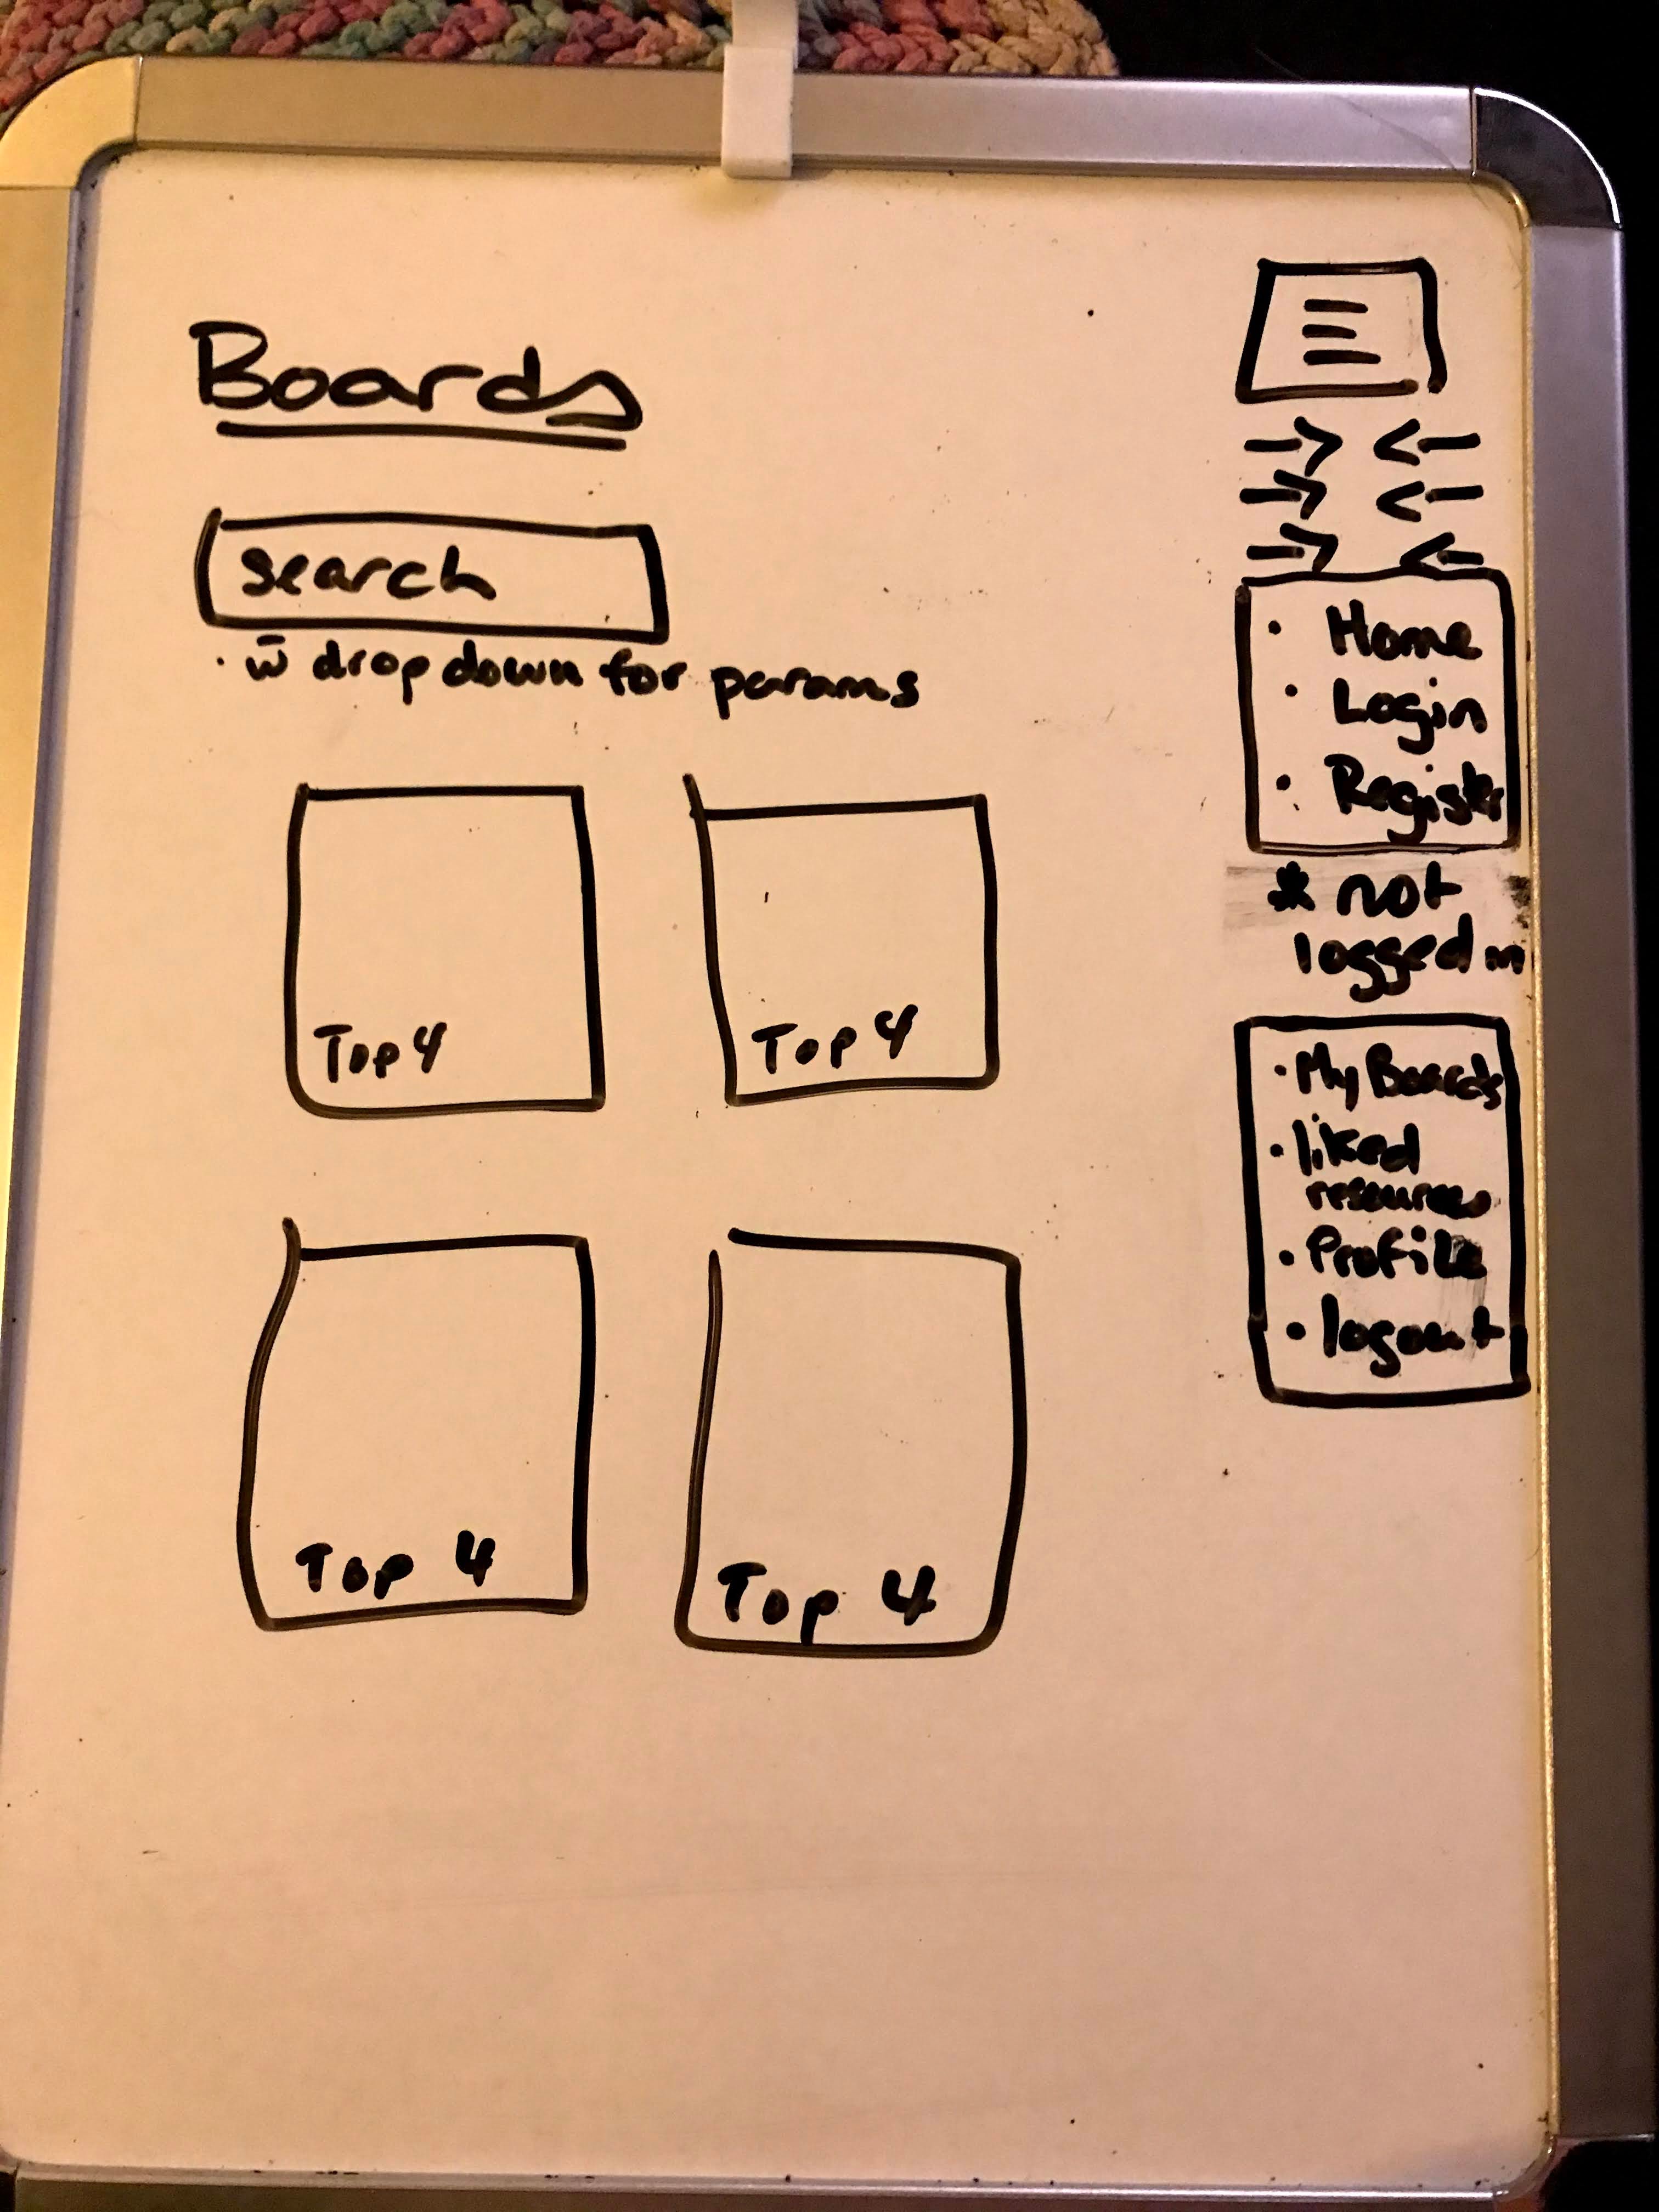 Boards
search
· w̄ dropdown for params
Top 4
Top 4
Top 4
Top 4
• Home
• Login
• Register
* not
logged in
• My Boards
• liked
resources
• Profile
• logout